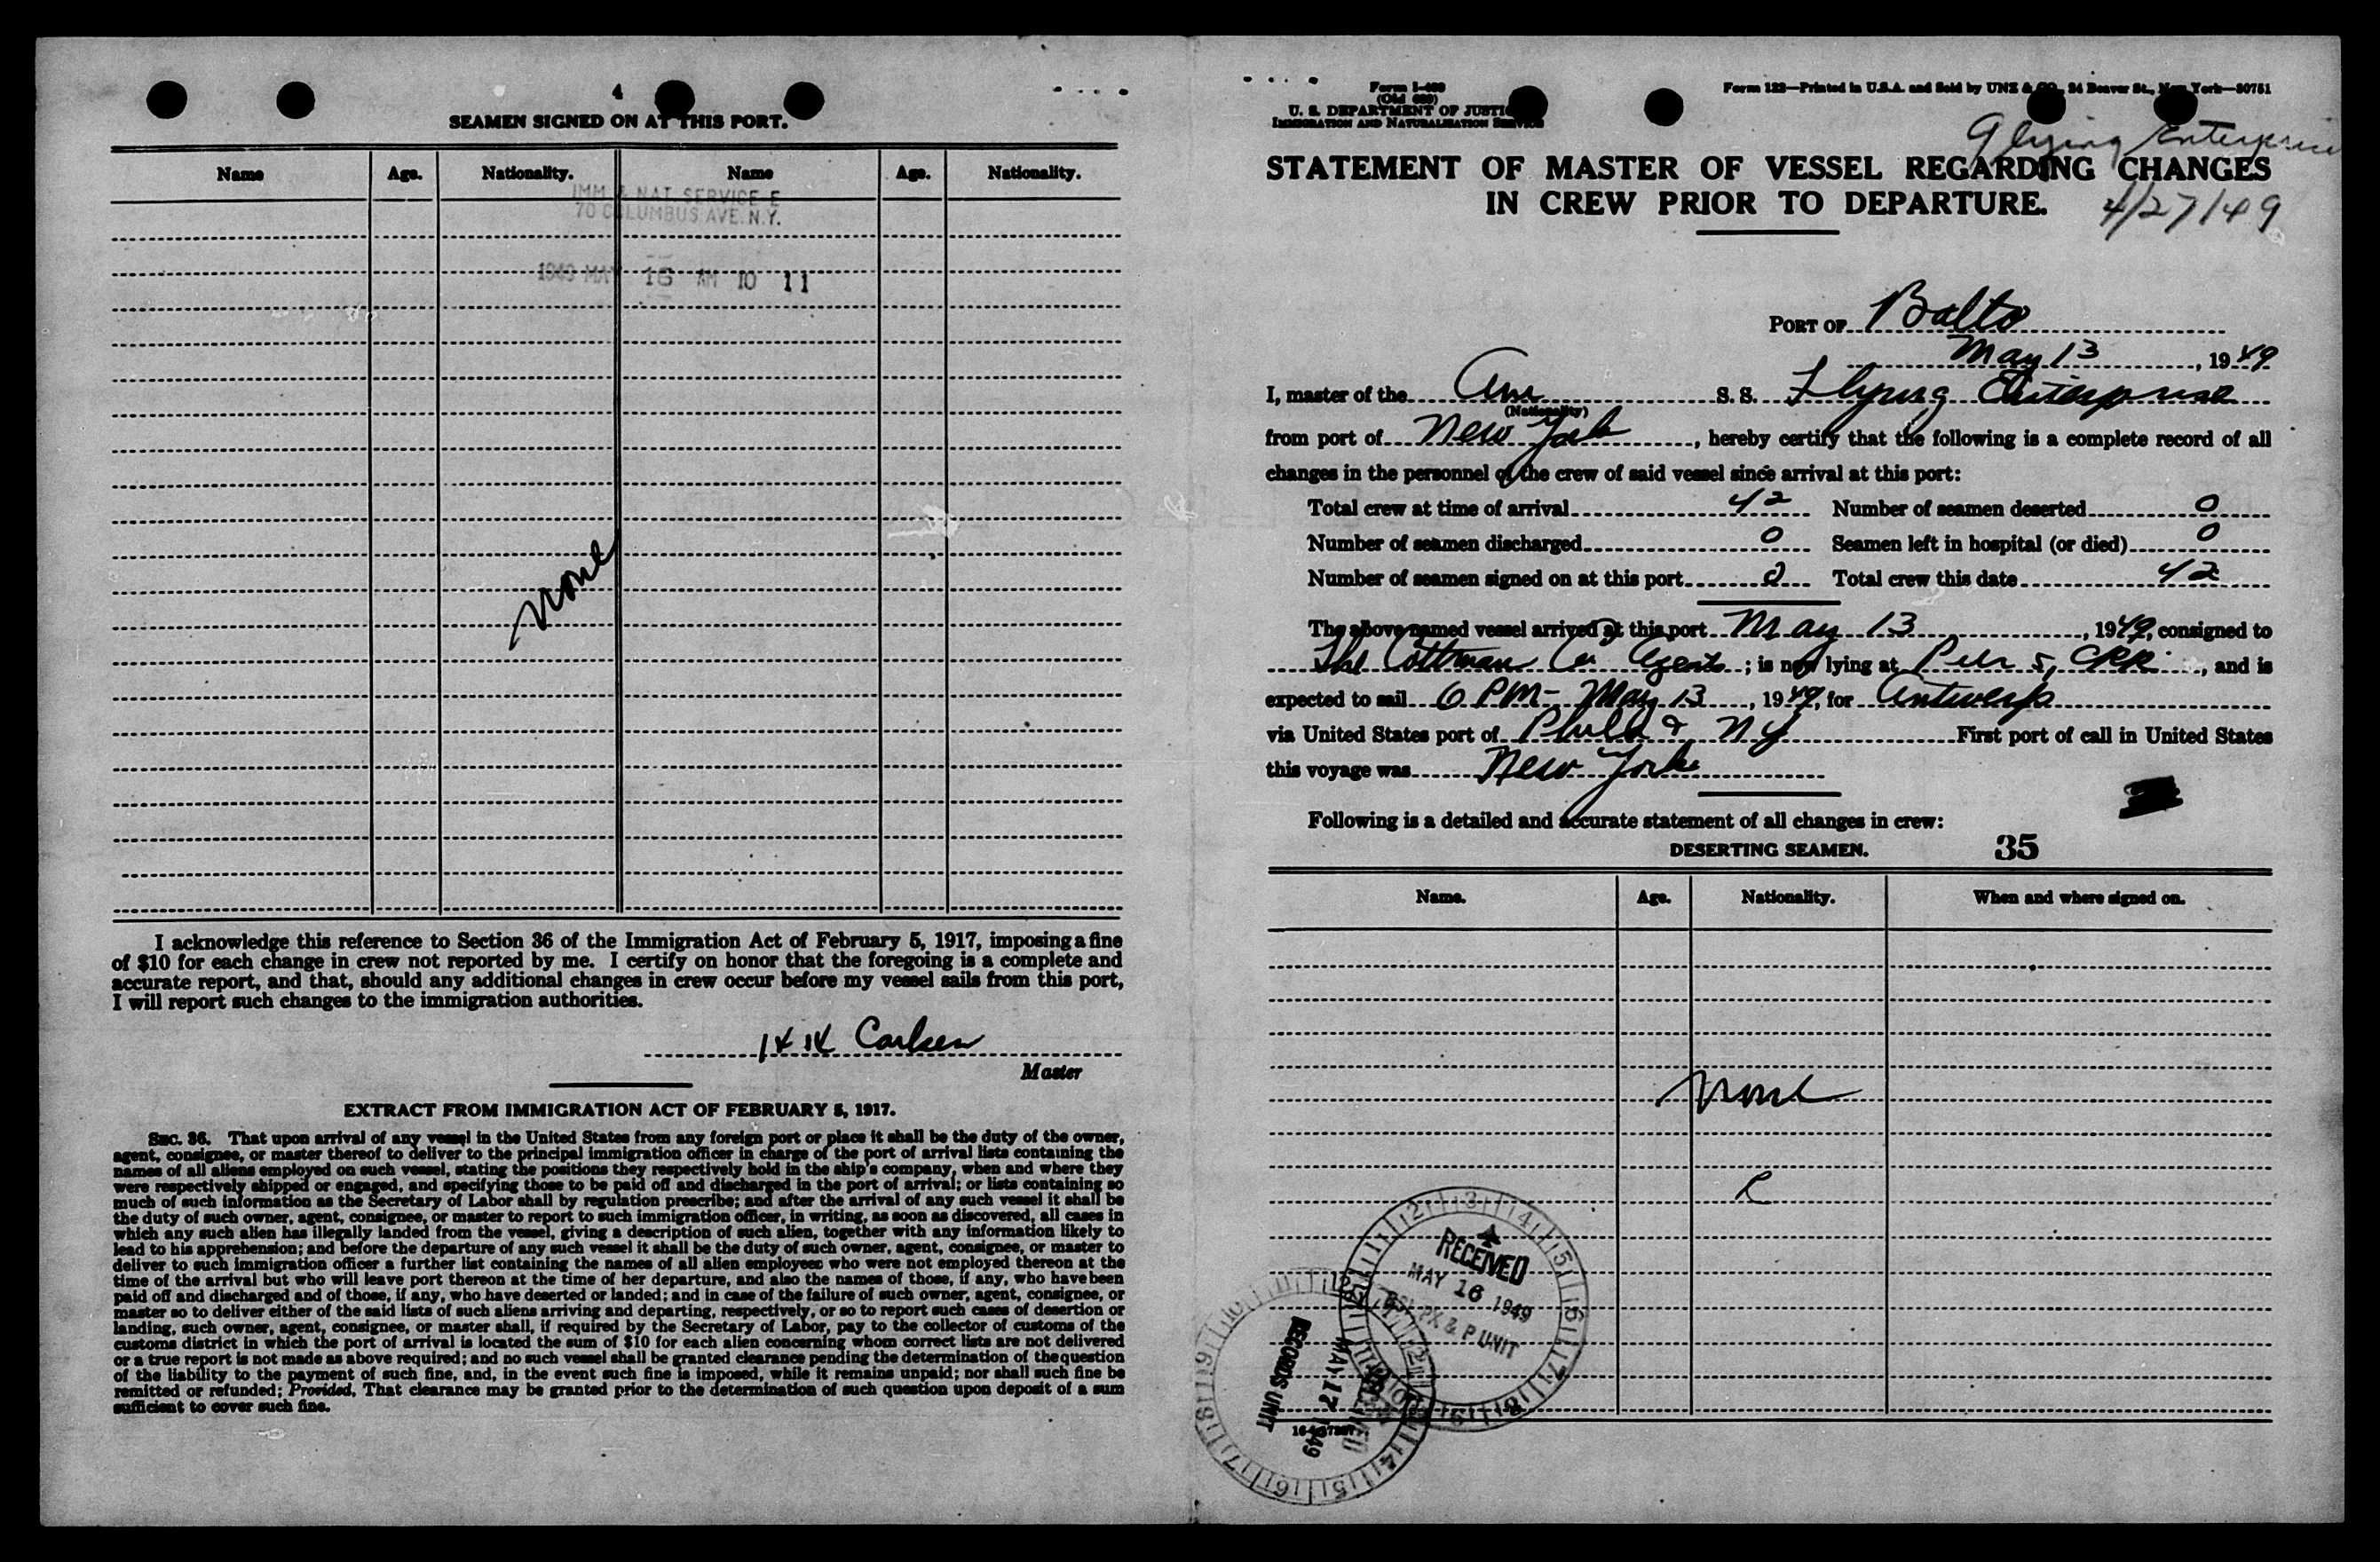 4
SEAMEN SIGNED ON AT THIS PORT.
Name Age. Nationality. Name Age. Nationality.
IMM & NAT SERVICE E
70 COLUMBUS AVE. N.Y.
1949 MAY 16 AM 10 11
None
I acknowledge this reference to Section 36 of the Immigration Act of February 5, 1917, imposing a fine
of $10 for each change in crew not reported by me. I certify on honor that the foregoing is a complete and
accurate report, and that, should any additional changes in crew occur before my vessel sails from this port,
I will report such changes to the immigration authorities.
Carlsen
Master
EXTRACT FROM IMMIGRATION ACT OF FEBRUARY 5, 1917.
Sec. 36. That upon arrival of any vessel in the United States from any foreign port or place it shall be the duty of the owner,
agent, consignee, or master thereof to deliver to the principal immigration officer in charge of the port of arrival lists containing the
names of all aliens employed on such vessel, stating the positions they respectively hold in the ship's company, when and where they
were respectively shipped or engaged, and specifying those to be paid off and discharged in the port of arrival; or lists containing so
much of such information as the Secretary of Labor shall by regulation prescribe; and after the arrival of any such vessel it shall be
the duty of such owner, agent, consignee, or master to report to such immigration officer, in writing, as soon as discovered, all cases in
which any such alien has illegally landed from the vessel, giving a description of such alien, together with any information likely to
lead to his apprehension; and before the departure of any such vessel it shall be the duty of such owner, agent, consignee, or master to
deliver to such immigration officer a further list containing the names of all alien employees who were not employed thereon at the
time of the arrival but who will leave port thereon at the time of her departure, and also the names of those, if any, who have been
paid off and discharged and of those, if any, who have deserted or landed; and in case of the failure of such owner, agent, consignee, or
master so to deliver either of the said lists of such aliens arriving and departing, respectively, or so to report such cases of desertion or
landing, such owner, agent, consignee, or master shall, if required by the Secretary of Labor, pay to the collector of customs of the
customs district in which the port of arrival is located the sum of $10 for each alien concerning whom correct lists are not delivered
or a true report is not made as above required; and no such vessel shall be granted clearance pending the determination of the question
of the liability to the payment of such fine, and, in the event such fine is imposed, while it remains unpaid; nor shall such fine be
remitted or refunded; Provided, That clearance may be granted prior to the determination of such question upon deposit of a sum
sufficient to cover such fine.
Form I-489
(Old 689)
U. S. DEPARTMENT OF JUSTICE
Immigration and Naturalization Service
Form 122—Printed in U.S.A. and Sold by UNZ & CO., 24 Beaver St., New York—30751
Flying Enterprise
STATEMENT OF MASTER OF VESSEL REGARDING CHANGES
IN CREW PRIOR TO DEPARTURE.
4/27/49
Port of Balto
May 13, 1949
I, master of the Am S. S. Flying Enterprise
(Nationality)
from port of New York, hereby certify that the following is a complete record of all
changes in the personnel of the crew of said vessel since arrival at this port:
Total crew at time of arrival 42 Number of seamen deserted 0
Number of seamen discharged 0 Seamen left in hospital (or died) 0
Number of seamen signed on at this port 0 Total crew this date 42
The above named vessel arrived at this port May 13, 1949, consigned to
The Cottman Co Agents; is now lying at Pier 5, , and is
expected to sail 6 PM - May 13, 1949, for Antwerp
via United States port of Phila & NY First port of call in United States
this voyage was New York
Following is a detailed and accurate statement of all changes in crew:
DESERTING SEAMEN. 35
Name. Age. Nationality. When and where signed on.
None
RECEIVED
MAY 16 1949
& P UNIT
RECORDS UNIT
MAY 17 1949
RECEIVED